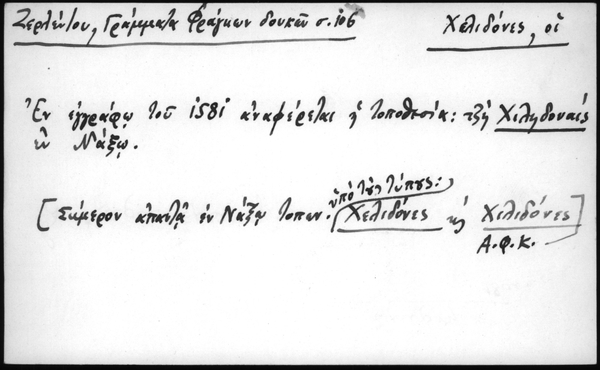 Ζερλέντου, Γράμματα Φράγκων δουκῶν σ. 106
Χελιδόνες, οἱ
Ἐν ἐγγράφῳ τοῦ 1581 ἀναφέρεται ἡ τοποθεσία: τζῆ Χιληδοναίς
ἐν Νάξῳ.
ὑπὸ τοὺς τύπους:
[Σήμερον ἀπαντᾷ ἐν Νάξῳ τοπων. Χελιδόνες κ̀ Χιλιδόνες]
Α.Φ.Κ.